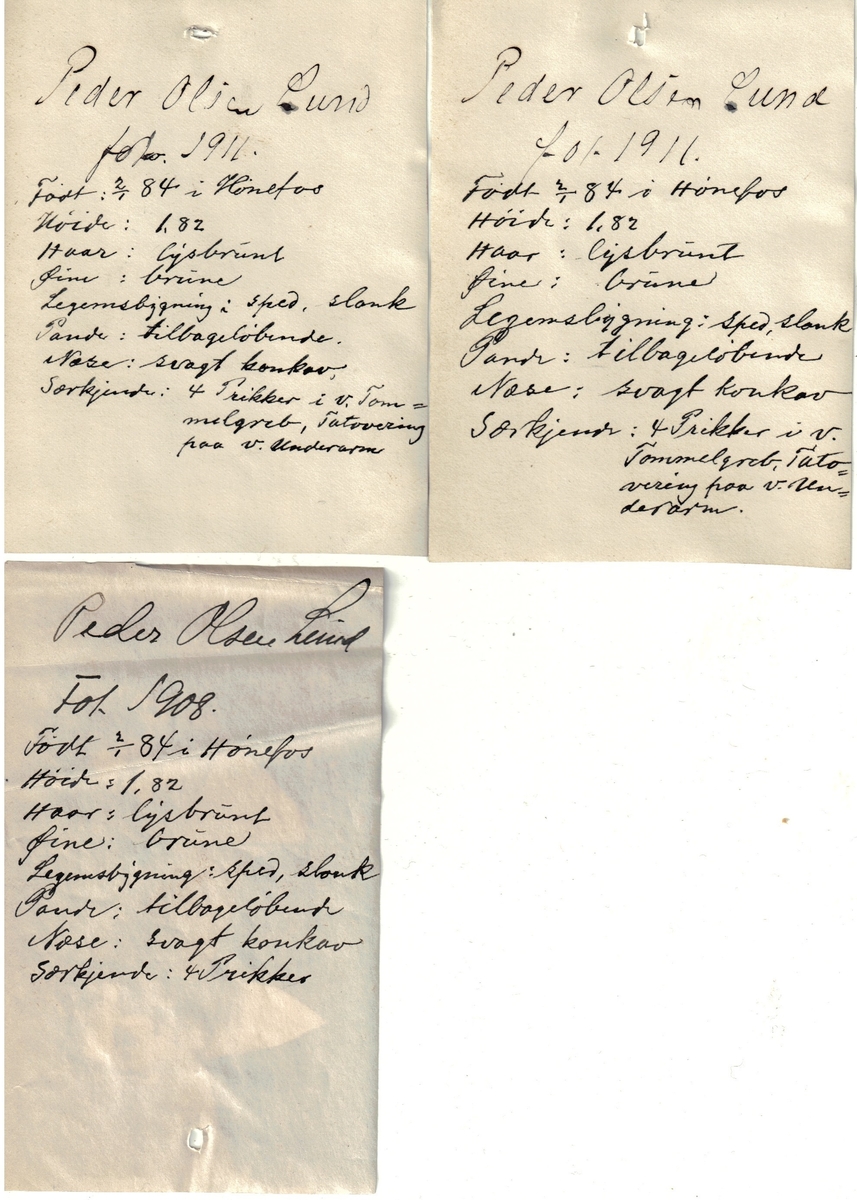 Peder Olsen Lund
fot. 1911.
Födt: 2/1 84 i Hönefos
Höide: 1,82
Haar: lysbrunt
Øine: brune
Legemsbygning: sped, slank
Pande: tilbagelöbende.
Næse: svagt konkav,
Særkjende: 4 Prikker i v. Tom=
melgreb, Tatovering
paa v. Underarm
Peder Olsen Lund
fot. 1911.
Födt 2/1 84 i Hönefos
Höide: 1,82
Haar: lysbrunt
Øine: brune
Legemsbygning: sped, slank
Pande: tilbagelöbende
Næse: svagt konkav
Særkjende: 4 Prikker i v.
Tommelgreb, Tato=
vering paa v. Un=
derarm.
Peder Olsen Lund
Fot. 1908.
Födt 2/1 84 i Hönefos
Höide: 1,82
Haar: lysbrunt
Øine: brune
Legemsbygning: sped, slank
Pande: tilbagelöbende
Næse: svagt konkav
Særkjende: 4 Prikker